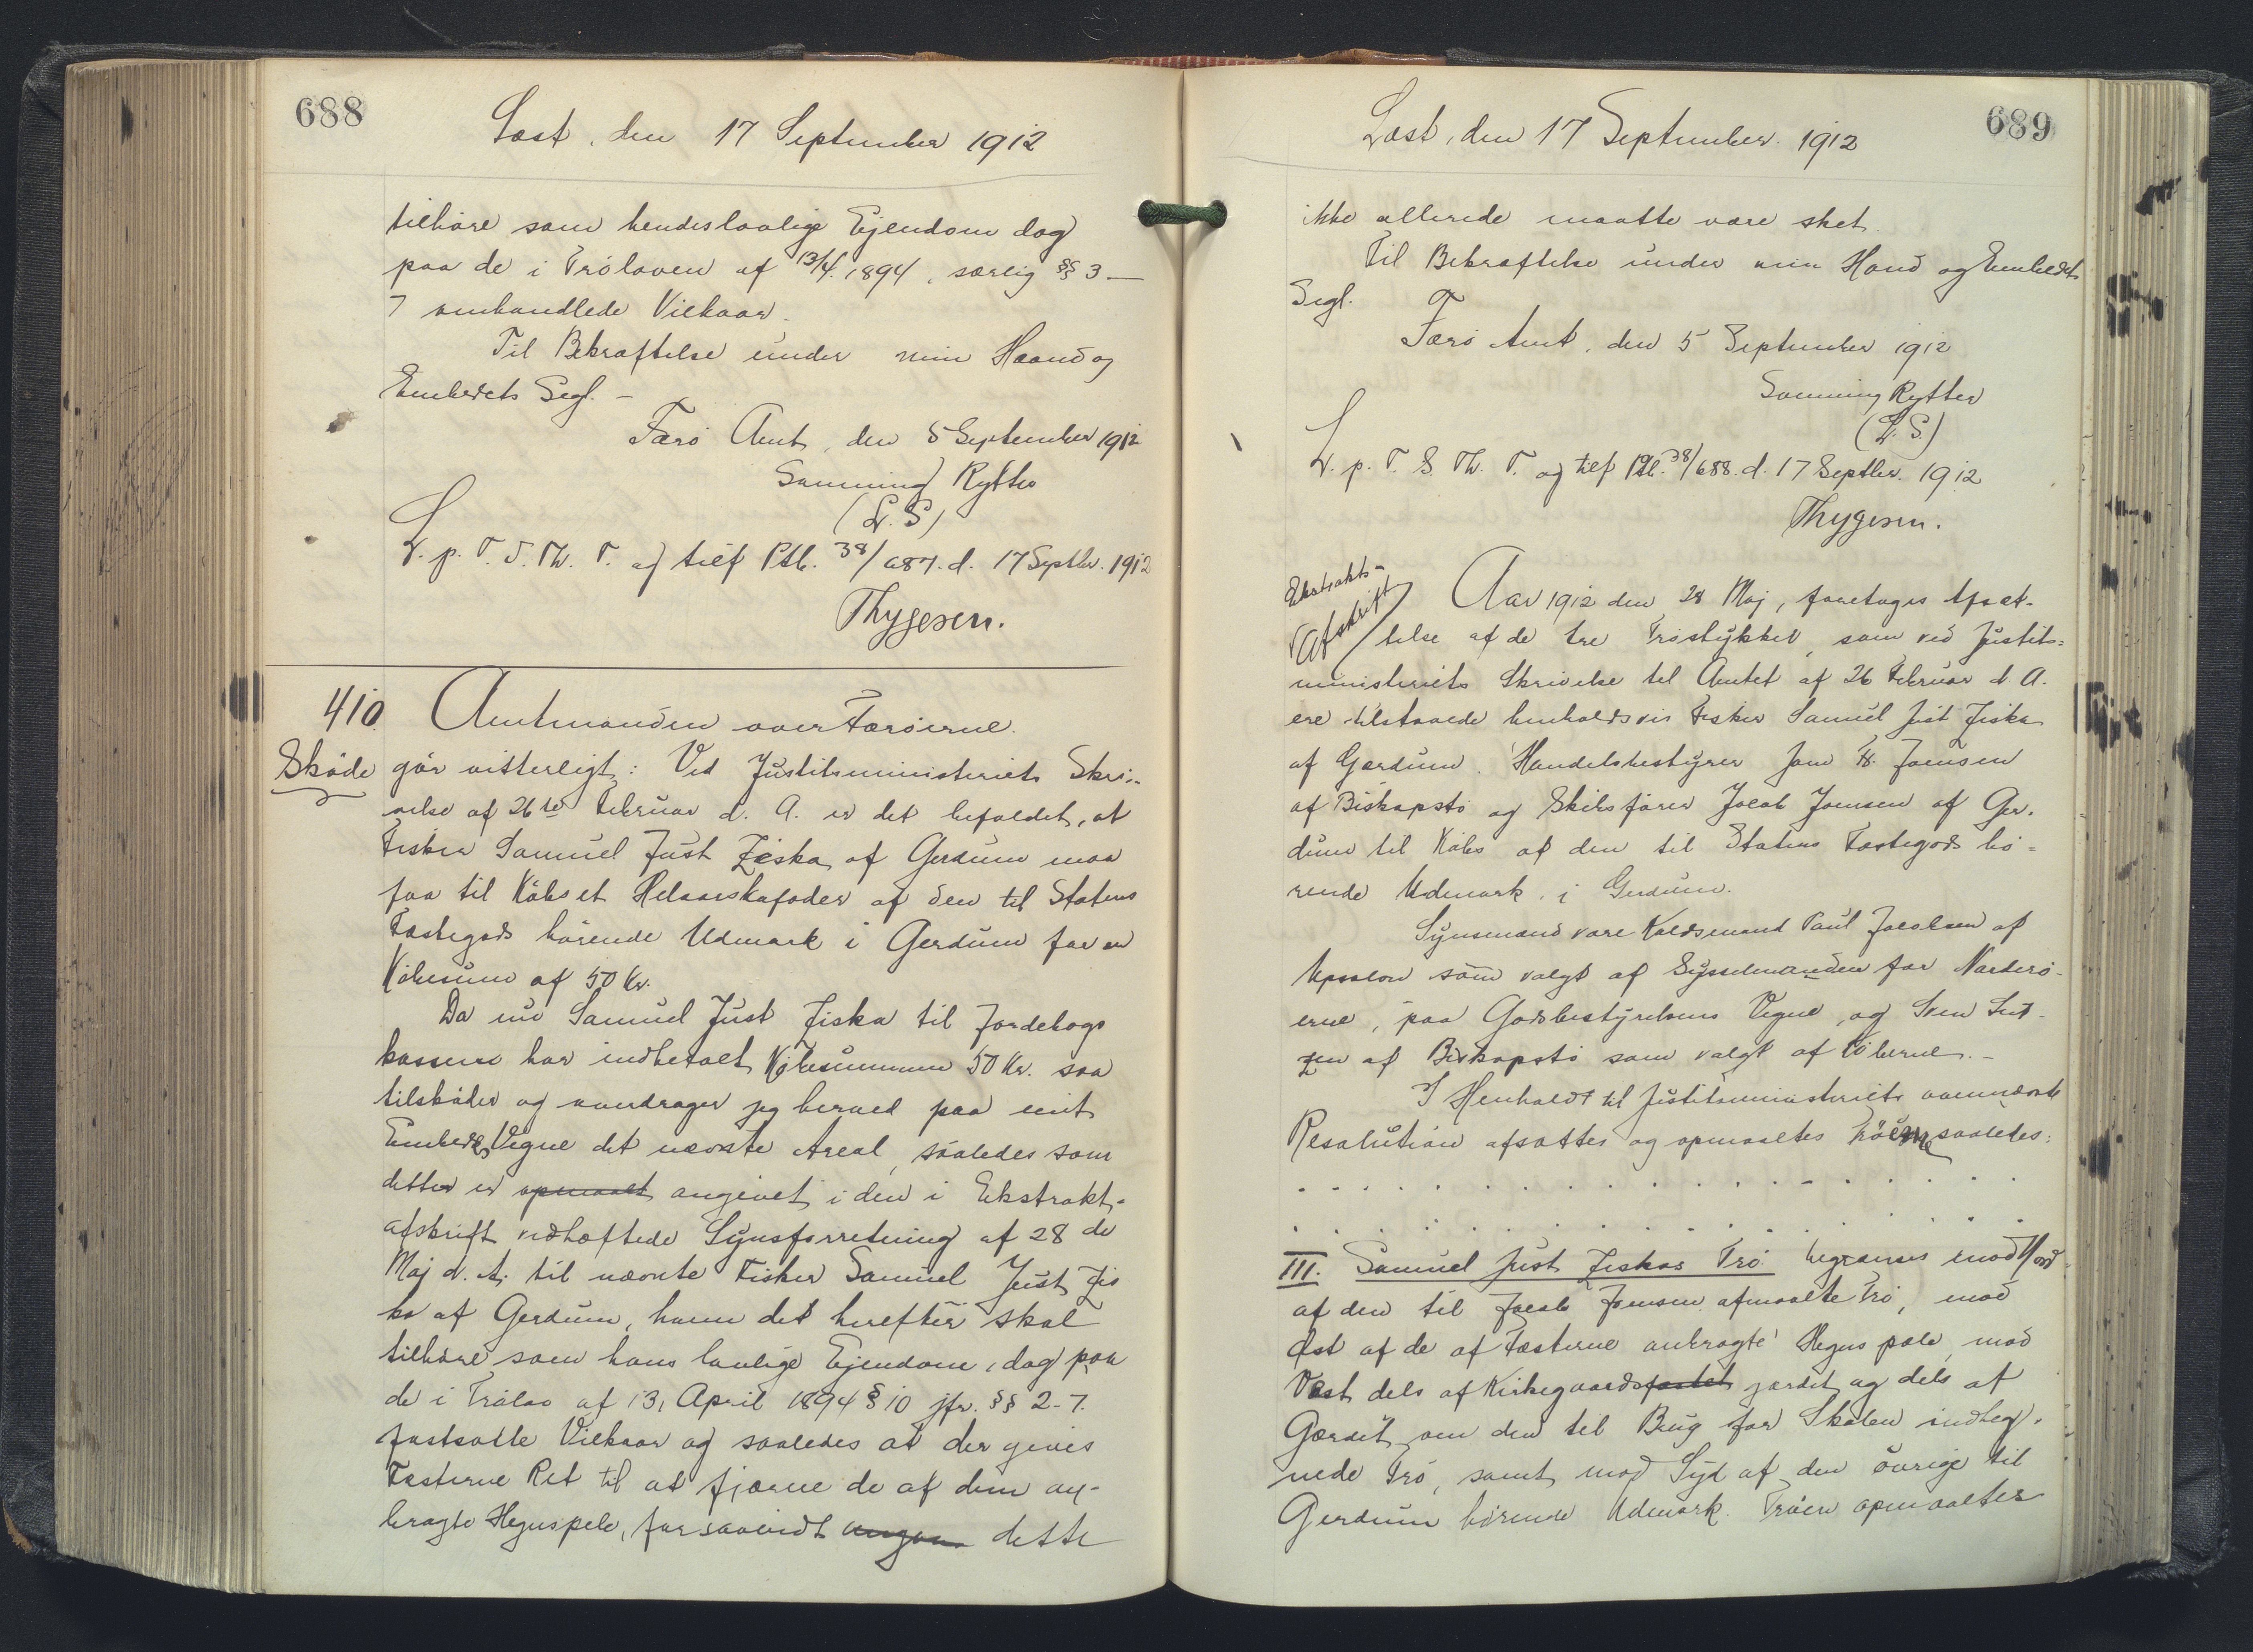 688
Læst, den 17 September 1912
tilhøre som hendes lovlige Ejendom dog
paa de i Trøloven af 13/4. 1894, særlig §§ 3 —
7 omhandlede Vilkaar.
Til Bekræftelse under min Haand og
Embedets Segl. —
Færø Amt, den 5 September 1912
Svenning Rytter
(L. S)
L. p. T. S. Th. T. og tilf Ptb. 38/687. d. 17 Septbr. 1912
Thygesen.
410. Amtmanden over Færøerne.
Skøde gör vitterligt: Ved Justitsministeriets Skri-
velse af 26de Februar d. A. er det befalet, at
Fisker Samuel Just Ziska af Gerdum maa
faa til Købs et Helaarskofoder af den til Statens
Fæstegods hørende Udmark i Gerdum for en
Købesum af 50 Kr.
Da nu Samuel Just Ziska til Jordebogs
kassen har indbetalt Købesummen 50 Kr. saa
tilskøder og overdrager jeg herved paa mit
Embeds Vegne det nævnte Areal, saaledes som
dette er opmaalt angivet i den i Ekstrakt-
afskrift vedhæftede Synsforretning af 28 de
Maj d. A. til nævnte Fisker Samuel Just Zis
ka af Gerdum, ham det herefter skal
tilhøre som hans lovlige Ejendom, dog paa
de i Trølov af 13, April 1894 § 10 jfr. §§ 2-7.
fastsatte Vilkaar og saaledes at der gives
Fæsterne Ret til at fjærne de af dem an-
bragte Hegnspæle, forsaavidt dette
689
Læst, den 17 September 1912
ikke allerede maatte være sket.
Til Bekræftelse under min Haand og Embedets
Segl.
Færø Amt, den 5 September 1912
Svenning Rytter
(L. S.)
L. p. T. S. Th. T. og tilf Ptb. 38/688. d. 17 Septbr. 1912
Thygesen.
Ekstrakts-
Afskrift
Aar 1912 den 28 Maj, foretoges Afsæt-
telse af de tre Trøstykker, som ved Justits-
ministeriets Skrivelse til Amtet af 26 Februar d A.
ere tilstaaede henholdsvis Fisker Samuel Just Ziska
af Gerdum. Handelsbestyrer Joen H. Joensen
af Biskopstø og Skibsfører Jacob Joensen af Ger-
dum til Købs af den til Statens Fæstegods hø-
rende Udmark i Gerdum.
Synsmænd vare Kaldsmand Paul Jacobsen af
Upsalon som valgt af Sysselmanden for Norderø-
erne, paa Godsbestyrelsens Vegne, og Sven
af Biskopstø som valgt af Køberne. —
I Henhold til Justitsministeriets ovennævnte
Resolution afsattes og opmaaltes Trøerne saaledes:
. . . . . . . . . . . . . . . . .
. . . . . . . . . . . . . . . . .
III. Samuel Just Ziskas Trø begrænses mod Nord
af den til Jacob Joensen afmaalte Trø, mod
Øst af de af Fæsterne anbragte Hegnspæle, mod
Vest dels af Kirkegaardsfastet gærdet og dels af
Gærdet om den til Brug for Skolen indheg-
nede Trø, samt mod Syd af den øvrige til
Gerdum hørende Udmark. Trøen opmaaltes